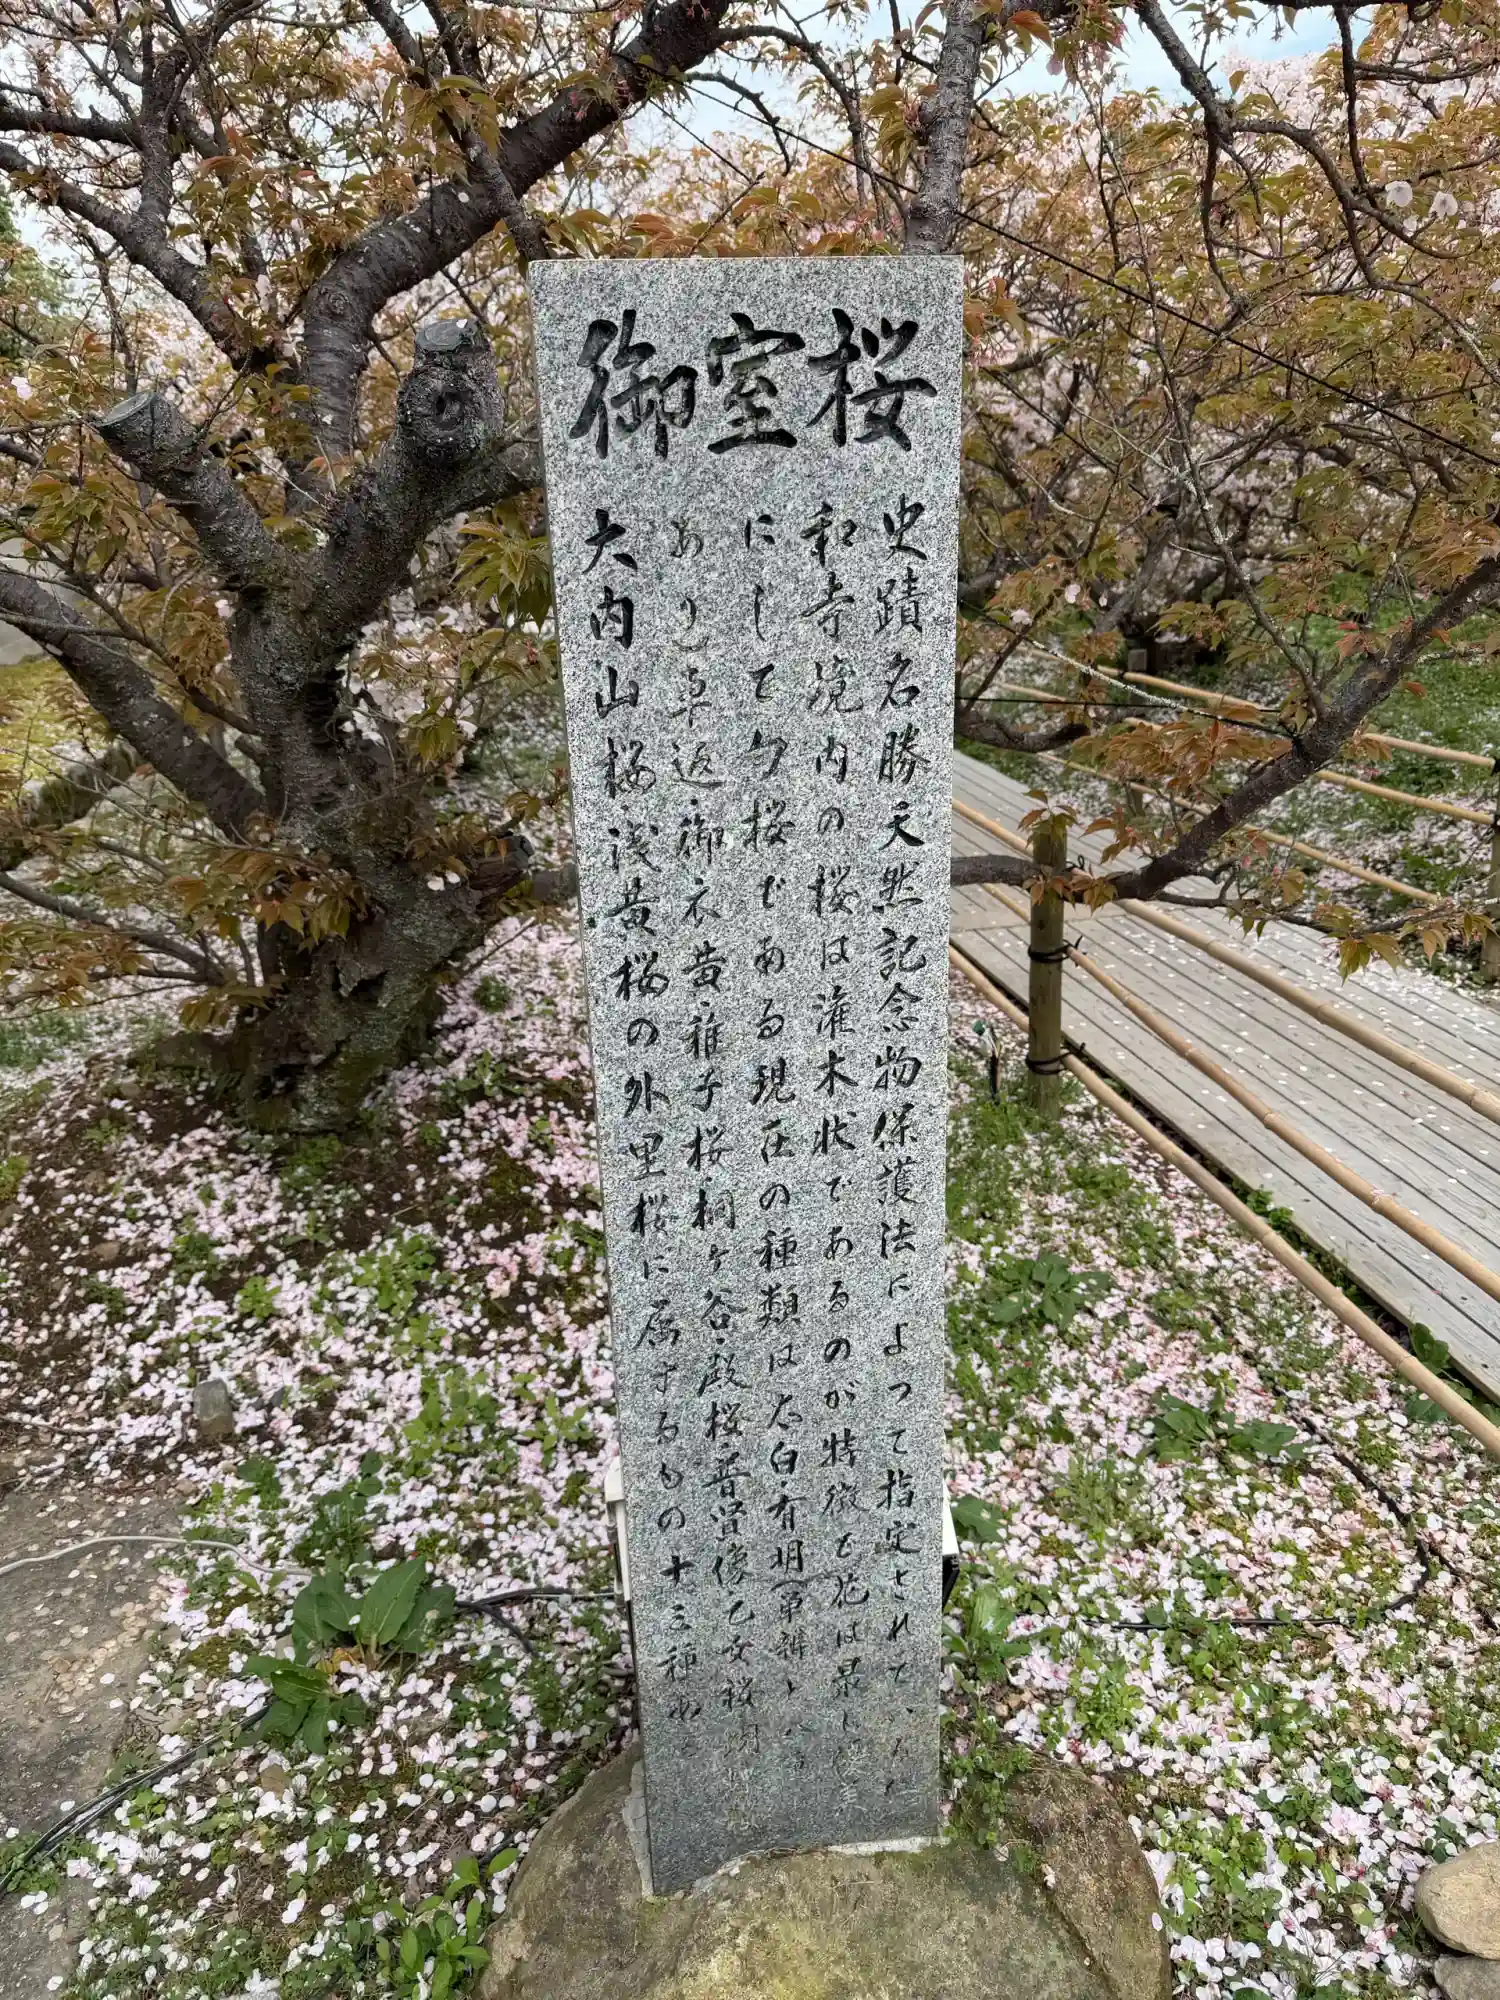 御室桜
史蹟名勝天然記念物保護法によって指定されている仁
和寺境内の桜は灌木状であるのが特徴で花は最も優美
にして匂桜である現在の種類は太白・有明(単辨・八重
あり)車返・御衣黄・稚子桜・桐ヶ谷・殿桜・普賢像・乙女桜・胡蝶桜
大内山桜・浅黄桜の外里桜に属するもの十三種ある